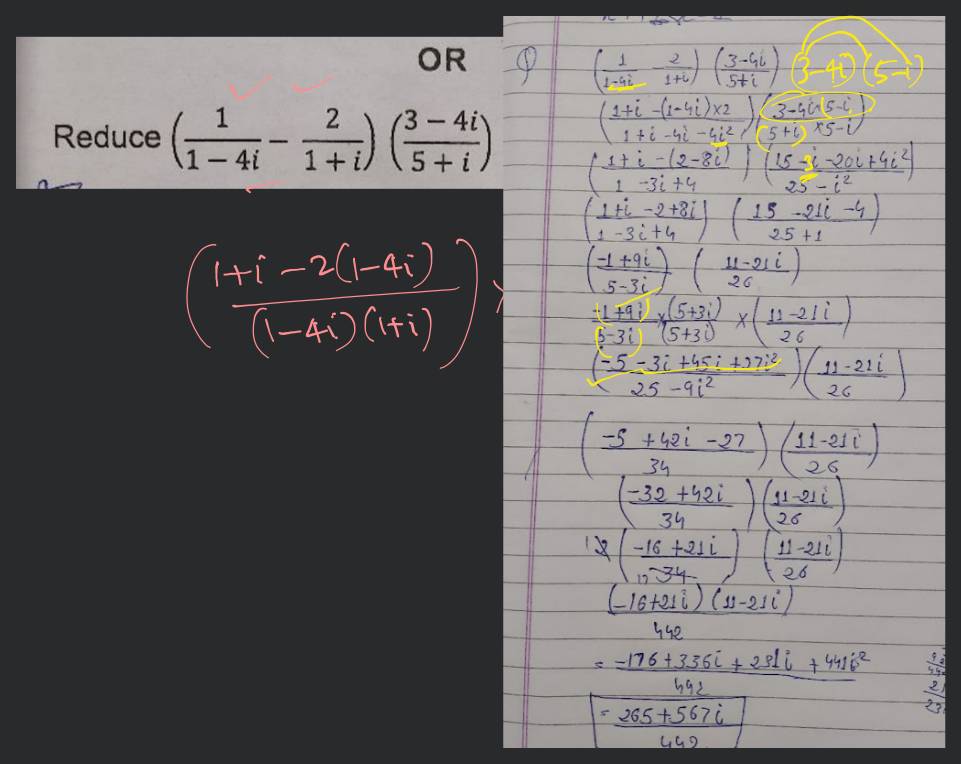 OR
Reduce (1/(1 − 4i) − 2/(1 + i)) ((3 − 4i)/(5 + i))
((1+i −2(1−4i))/((1−4i)(1+i))) ×
(1/(1−4i) 2/(1+i)) ((3−4i)/(5+i)) (3−4i)(5−i)
((1+i −(1−4i)×2)/(1+i −4i −4i²)) ((3−4i)(5−i)/((5+i)×5−i))
((1+i −(2−8i))/(1 −3i+4)) ((15 −3i −20i+4i²)/(25 −i²))
((1+i −2+8i)/(1 −3i+4)) ((15 −21i −4)/(25+1))
((−1+9i)/(5−3i)) ((11−21i)/26)
(−1+9i)/(5−3i) × (5+3i)/(5+3i) × ((11−21i)/26)
((−5 −3i +45i +27i²)/(25 −9i²)) ((11−21i)/26)
((−5 +42i −27)/34) ((11−21i)/26)
((−32 +42i)/34) ((11−21i)/26)
((−16 +21i)/34) ((11−21i)/26)
(−16+21i)(11−21i)/442
= (−176+336i+231i+441i²)/442
= (265+567i)/442